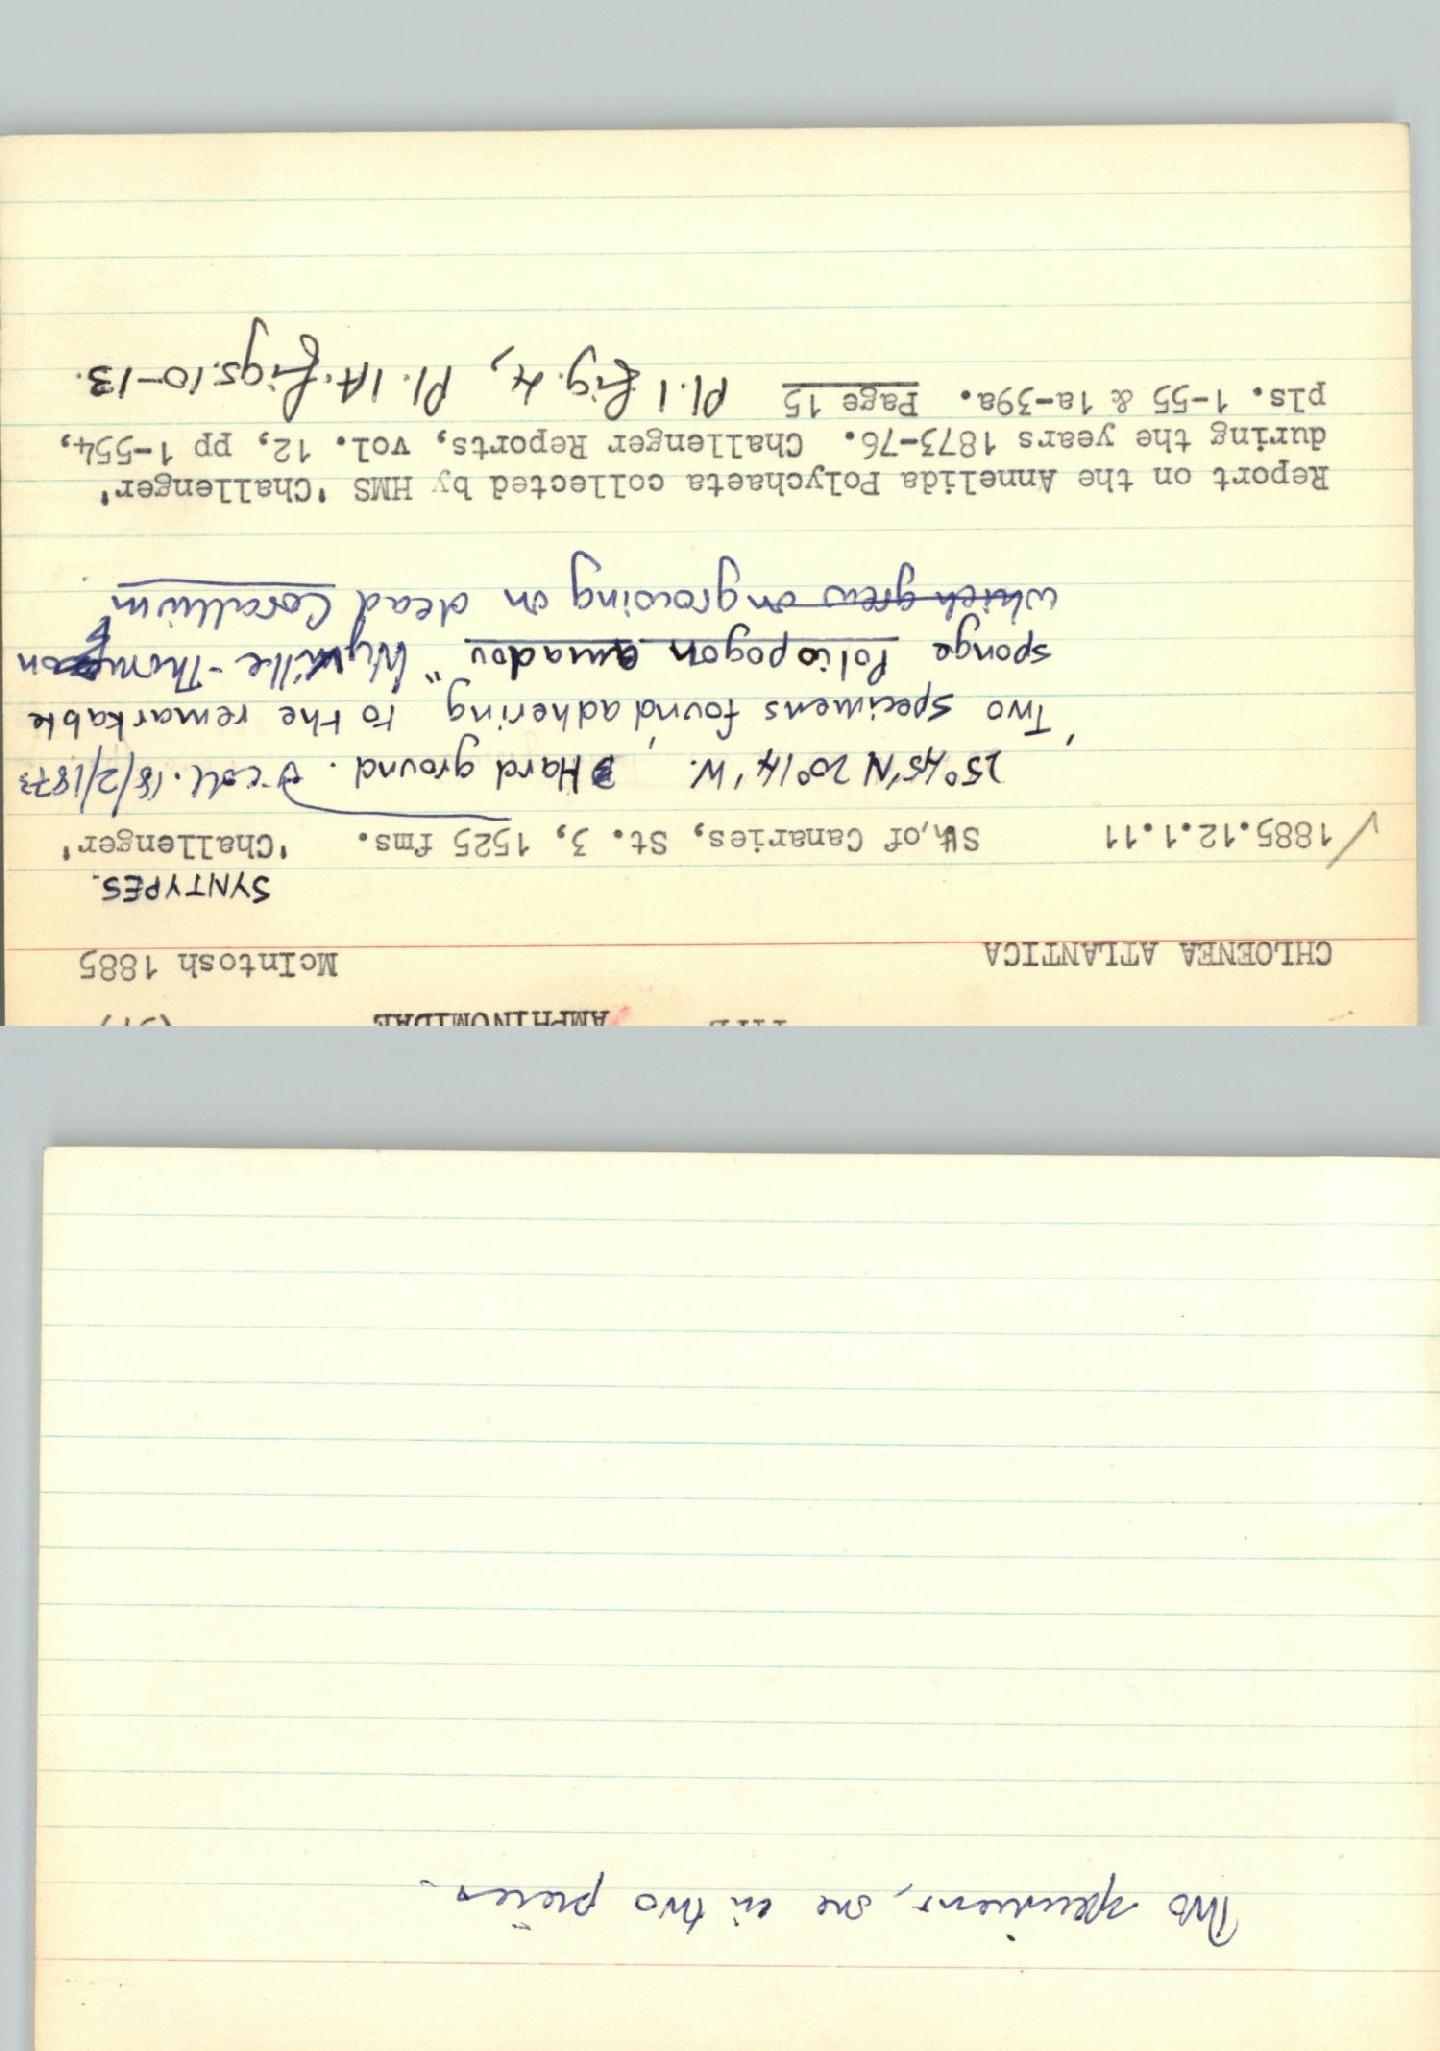 AMPHINOMIDAE
CHLOENEA ATLANTICA McIntosh 1885
SYNTYPES.
1885.12.1.11 of Canaries, St. 3, 1525 fms. 'Challenger'
25°45'N 20°14'W. Hard ground. coll. 18/2/1873
'Two specimens found adhering to the remarkable
sponge Poliopogon amadou" Wyville-Thomson
which grew on growing on dead Corallium
Report on the Annelida Polychaeta collected by HMS 'Challenger'
during the years 1873-76. Challenger Reports, vol. 12, pp 1-554,
pls. 1-55 & 1a-39a. Page 15 Pl.1 fig.4, Pl.1A.figs.10-13.
Two specimens, one in two pieces.